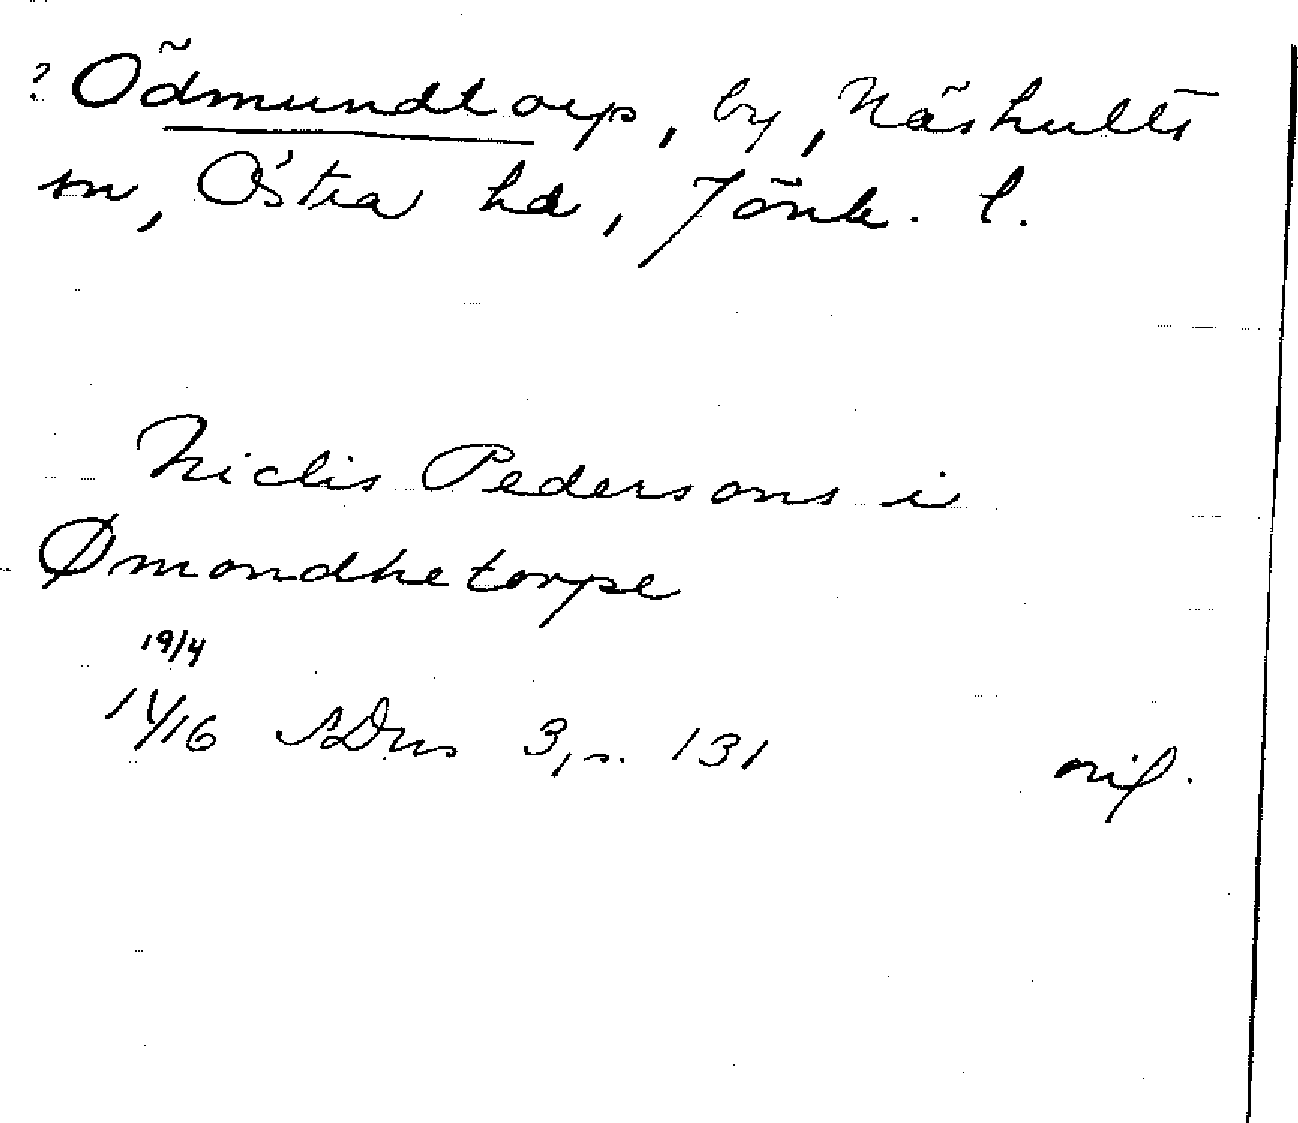 ? Ödmundtorp, by, Näshults
sn, Östra hd, Jönk. l.
Niclis Pedersons i
Ømondhetorpe
19/4
14/16 SDns 3, s. 131 orig.